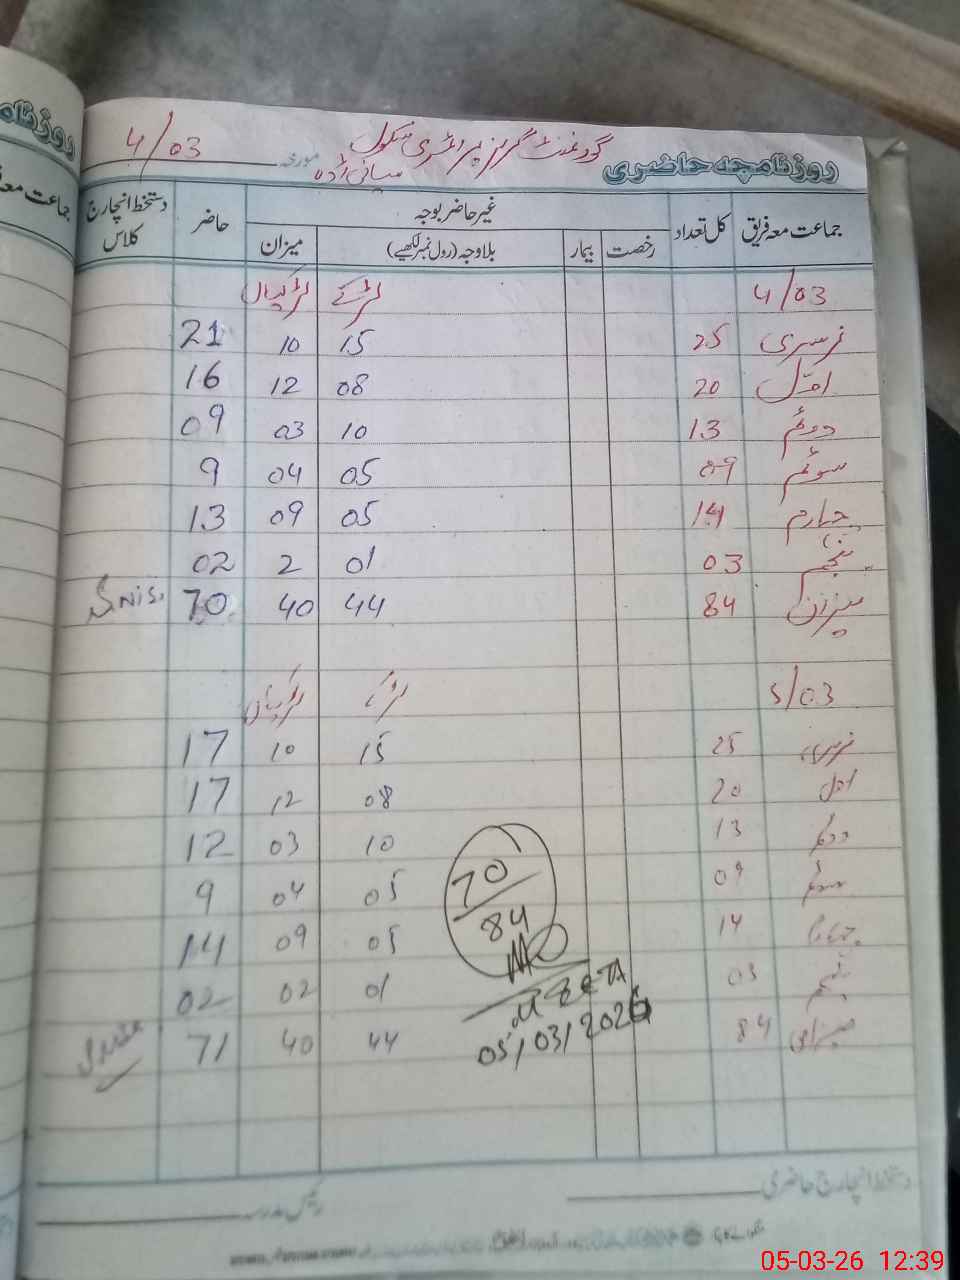 گورنمنٹ گرلز پرائمری سکول
روزنامچہ حاضری مورخہ 4/03
جماعت معہ فریق کل تعداد غیر حاضر بوجہ حاضر دستخط انچارج کلاس
رخصت بیمار بلاوجہ (رول نمبر لکھیے) میزان
4/03 لڑکے لڑکیاں
نرسری 25 15 10 21
اول 20 08 12 16
دوئم 13 10 03 09
سوئم 09 05 04 9
چہارم 14 05 09 13
پنجم 03 01 2 02
میزان 84 44 40 70
5/03 لڑکے لڑکیاں
نرسری 25 15 10 17
اول 20 08 12 17
دوئم 13 10 03 12
سوئم 09 05 04 9
چہارم 14 05 09 14
پنجم 03 01 02 02
میزان 84 44 40 71
70
84
05/03/2026
دستخط انچارج حاضری
رئیس مدرسہ
05-03-26 12:39